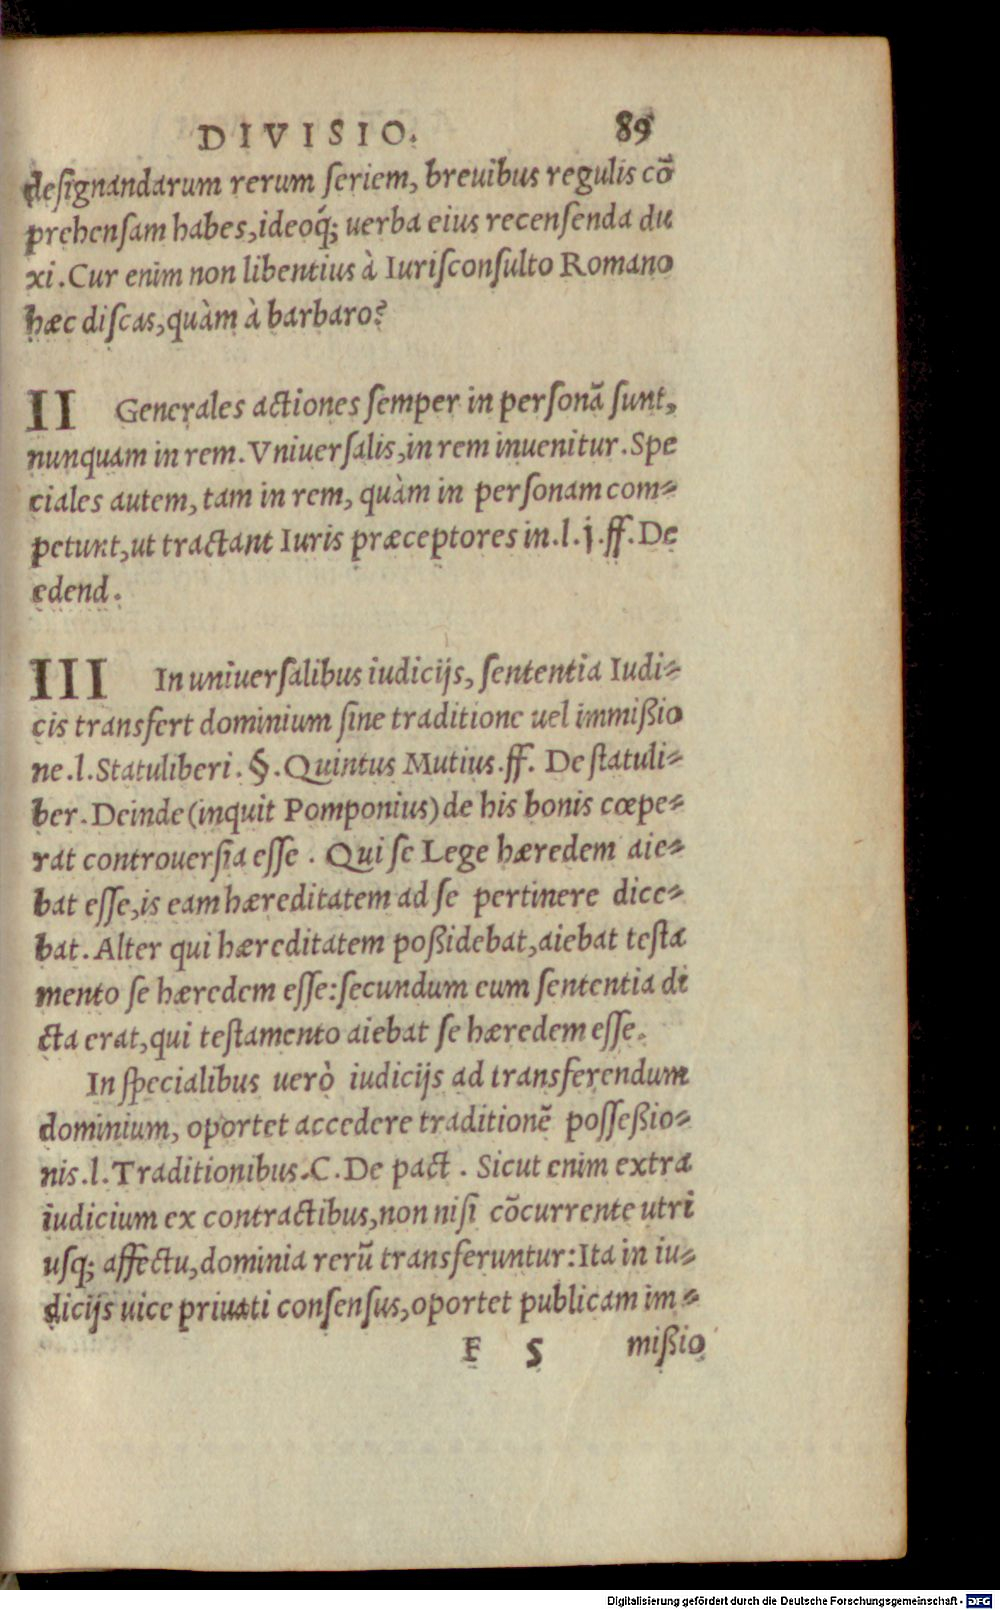 DIVISIO. 89
designandarum rerum seriem, brevibus regulis cō
prehensam habes, ideoq́; uerba eius recensenda du
xi. Cur enim non libentius à Iurisconsulto Romano
hæc discas, quàm à barbaro?
II Generales actiones semper in personã sunt,
nunquam in rem. Vniuersalis, in rem inuenitur. Spe
ciales autem, tam in rem, quàm in personam com-
petunt, ut tractant Iuris præceptores in. l. j. ff. De
edend.
III In uniuersalibus iudicijs, sententia Iudi-
cis transfert dominium sine traditione uel immißio
ne. l. Statuliberi. §. Quintus Mutius. ff. De statuli-
ber. Deinde (inquit Pomponius) de his bonis cœpe-
rat controuersia esse. Qui se Lege hæredem aie-
bat esse, is eam hæreditatem ad se pertinere dice-
bat. Alter qui hæreditatem poßidebat, aiebat testa
mento se hæredem esse: secundum eum sententia di
cta erat, qui testamento aiebat se hæredem esse.
In specialibus uerò iudicijs ad transferendum
dominium, oportet accedere traditionē possessio-
nis. l. Traditionibus. C. De pact. Sicut enim extra
iudicium ex contractibus, non nisi cōcurrente utri
usq; affectu, dominia rerũ transferuntur: Ita in iu-
dicijs uice priuati consensus, oportet publicam im-
F 5 mißio
Digitalisierung gefördert durch die Deutsche Forschungsgemeinschaft - DFG